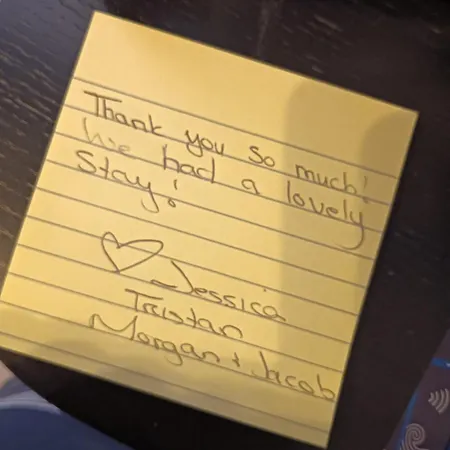 Thank you so much!
We had a lovely
Stay!
♡ Jessica
Tristan
Morgan + Jacob